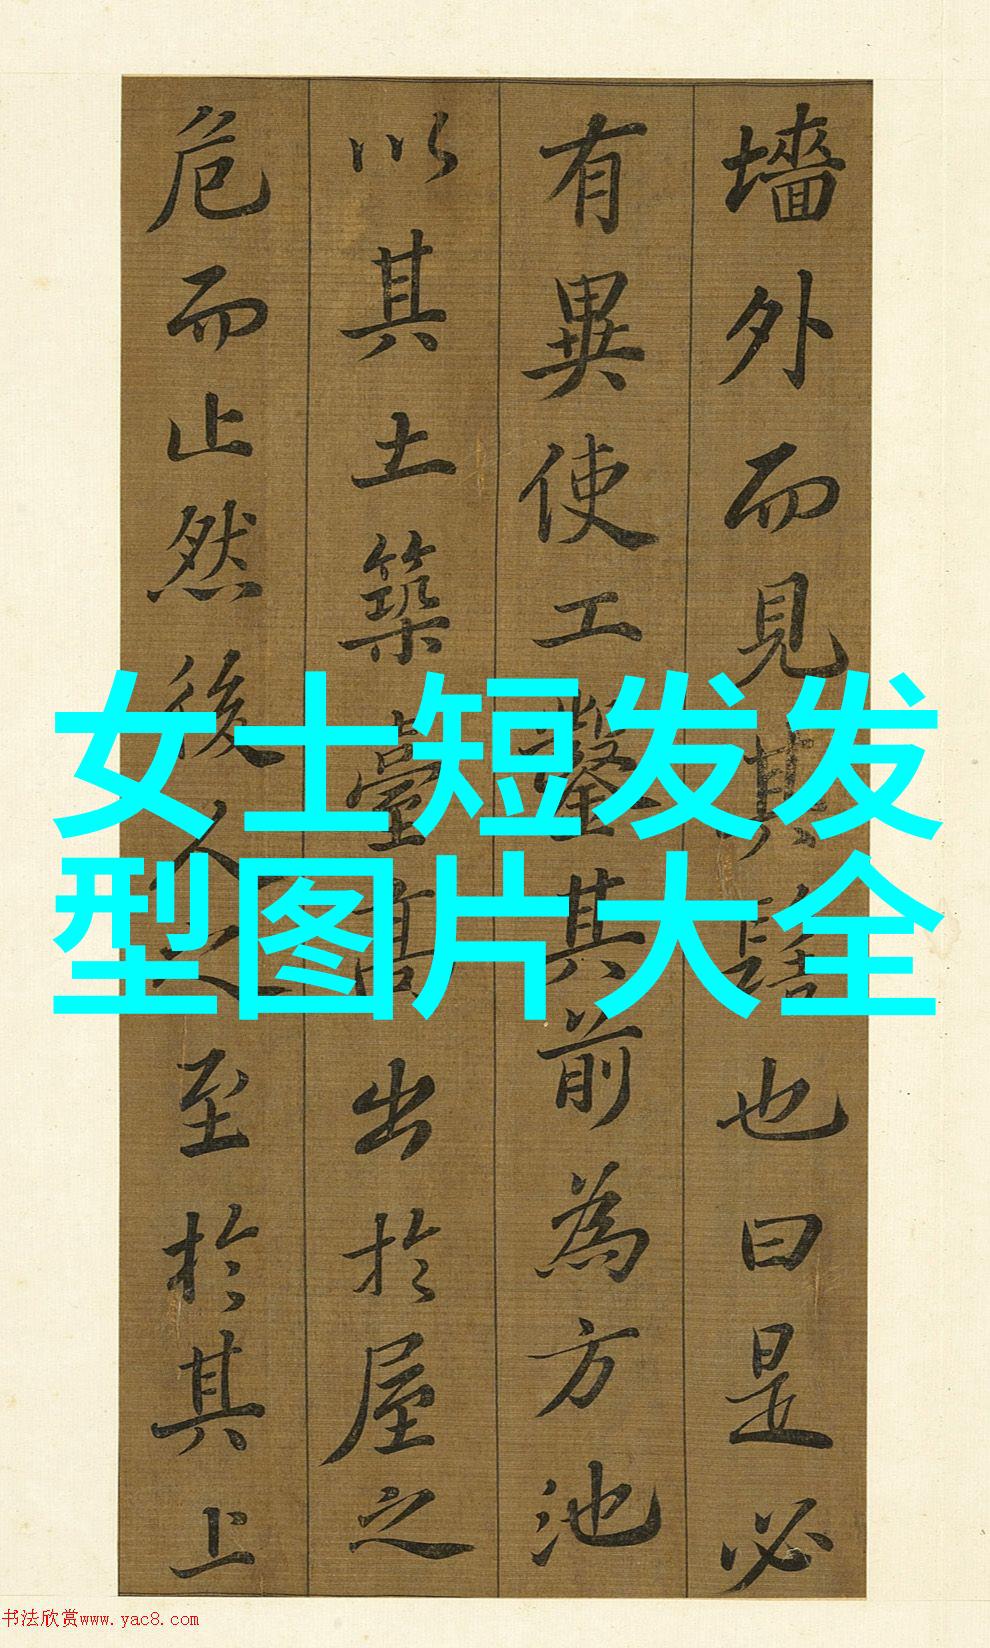 墻外而見其髻也曰是必
有異使工鑿其前為方池
以其土築臺高出於屋之
危而止然後人之至於其上
女士短发发
型图片大全
书法欣赏www.yac8.com